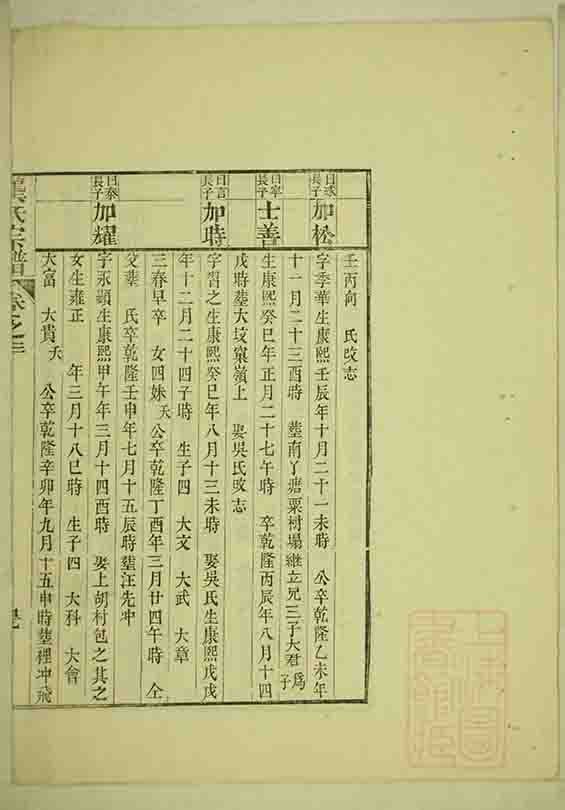 壬丙向　氏改志
曰球長子
加松
字季華生康熙壬辰年十月二十一未時　公卒乾隆乙未年
十一月二十三酉時　塟南丫塘粟樹塌繼立兄三子大君為子
曰寧長子
士善
生康熙癸巳年正月二十七午時　卒乾隆丙辰年八月十四
戌時塟大坟窠嶺上　娶吳氏改志
曰言長子
加時
字習之生康熙癸巳年八月十三未時　娶吳氏生康熙戊戌
年十二月二十四子時　生子四　大文　大武　大章
三春早卒　女四姝夭　公卒乾隆丁酉年三月廿四午時　仝
父塟　氏卒乾隆壬申年七月十五辰時塟汪先冲
曰泰長子
加耀
字永頴生康熙甲午年三月十四酉時　娶上胡村包之其之
女生雍正　年三月十八巳時　生子四　大科　大會
大富　大貴夭　公卒乾隆辛卯年九月十五申時塟裡冲飛
氏宗譜　卷之三